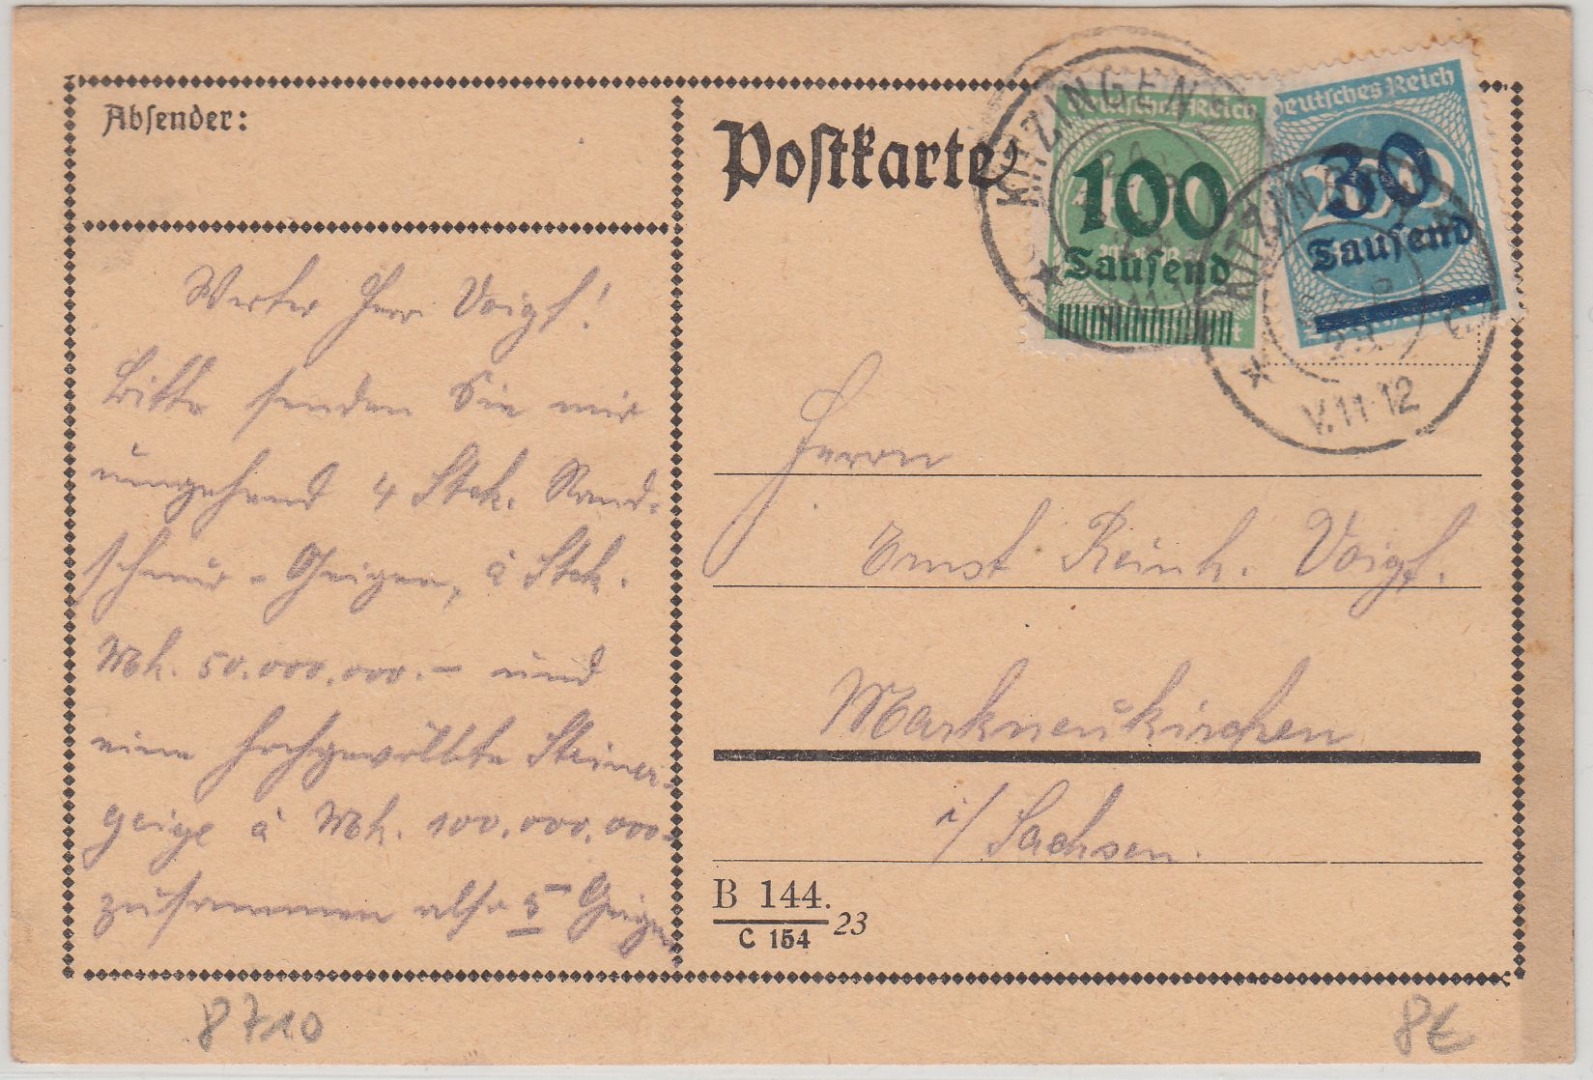 Absender:
Postkarte
KITZINGEN
Deutsches Reich
100
Tausend
Deutsches Reich
30
200
Tausend
KITZINGEN
V.11-12
Werter Herr Voigt!
Bitte senden Sie mir
umgehend 4 Stck. Rand-
schnur-Geigen, à Stck.
Mk. 50.000.000.- und
eine hochgewölbte Steiner-
geige à Mk. 100.000.000.-
zusammen also 5 Geigen
Herrn
Ernst Reinh. Voigt.
Markneukirchen
i/ Sachsen.
B 144.
C 154
23
8710
8€